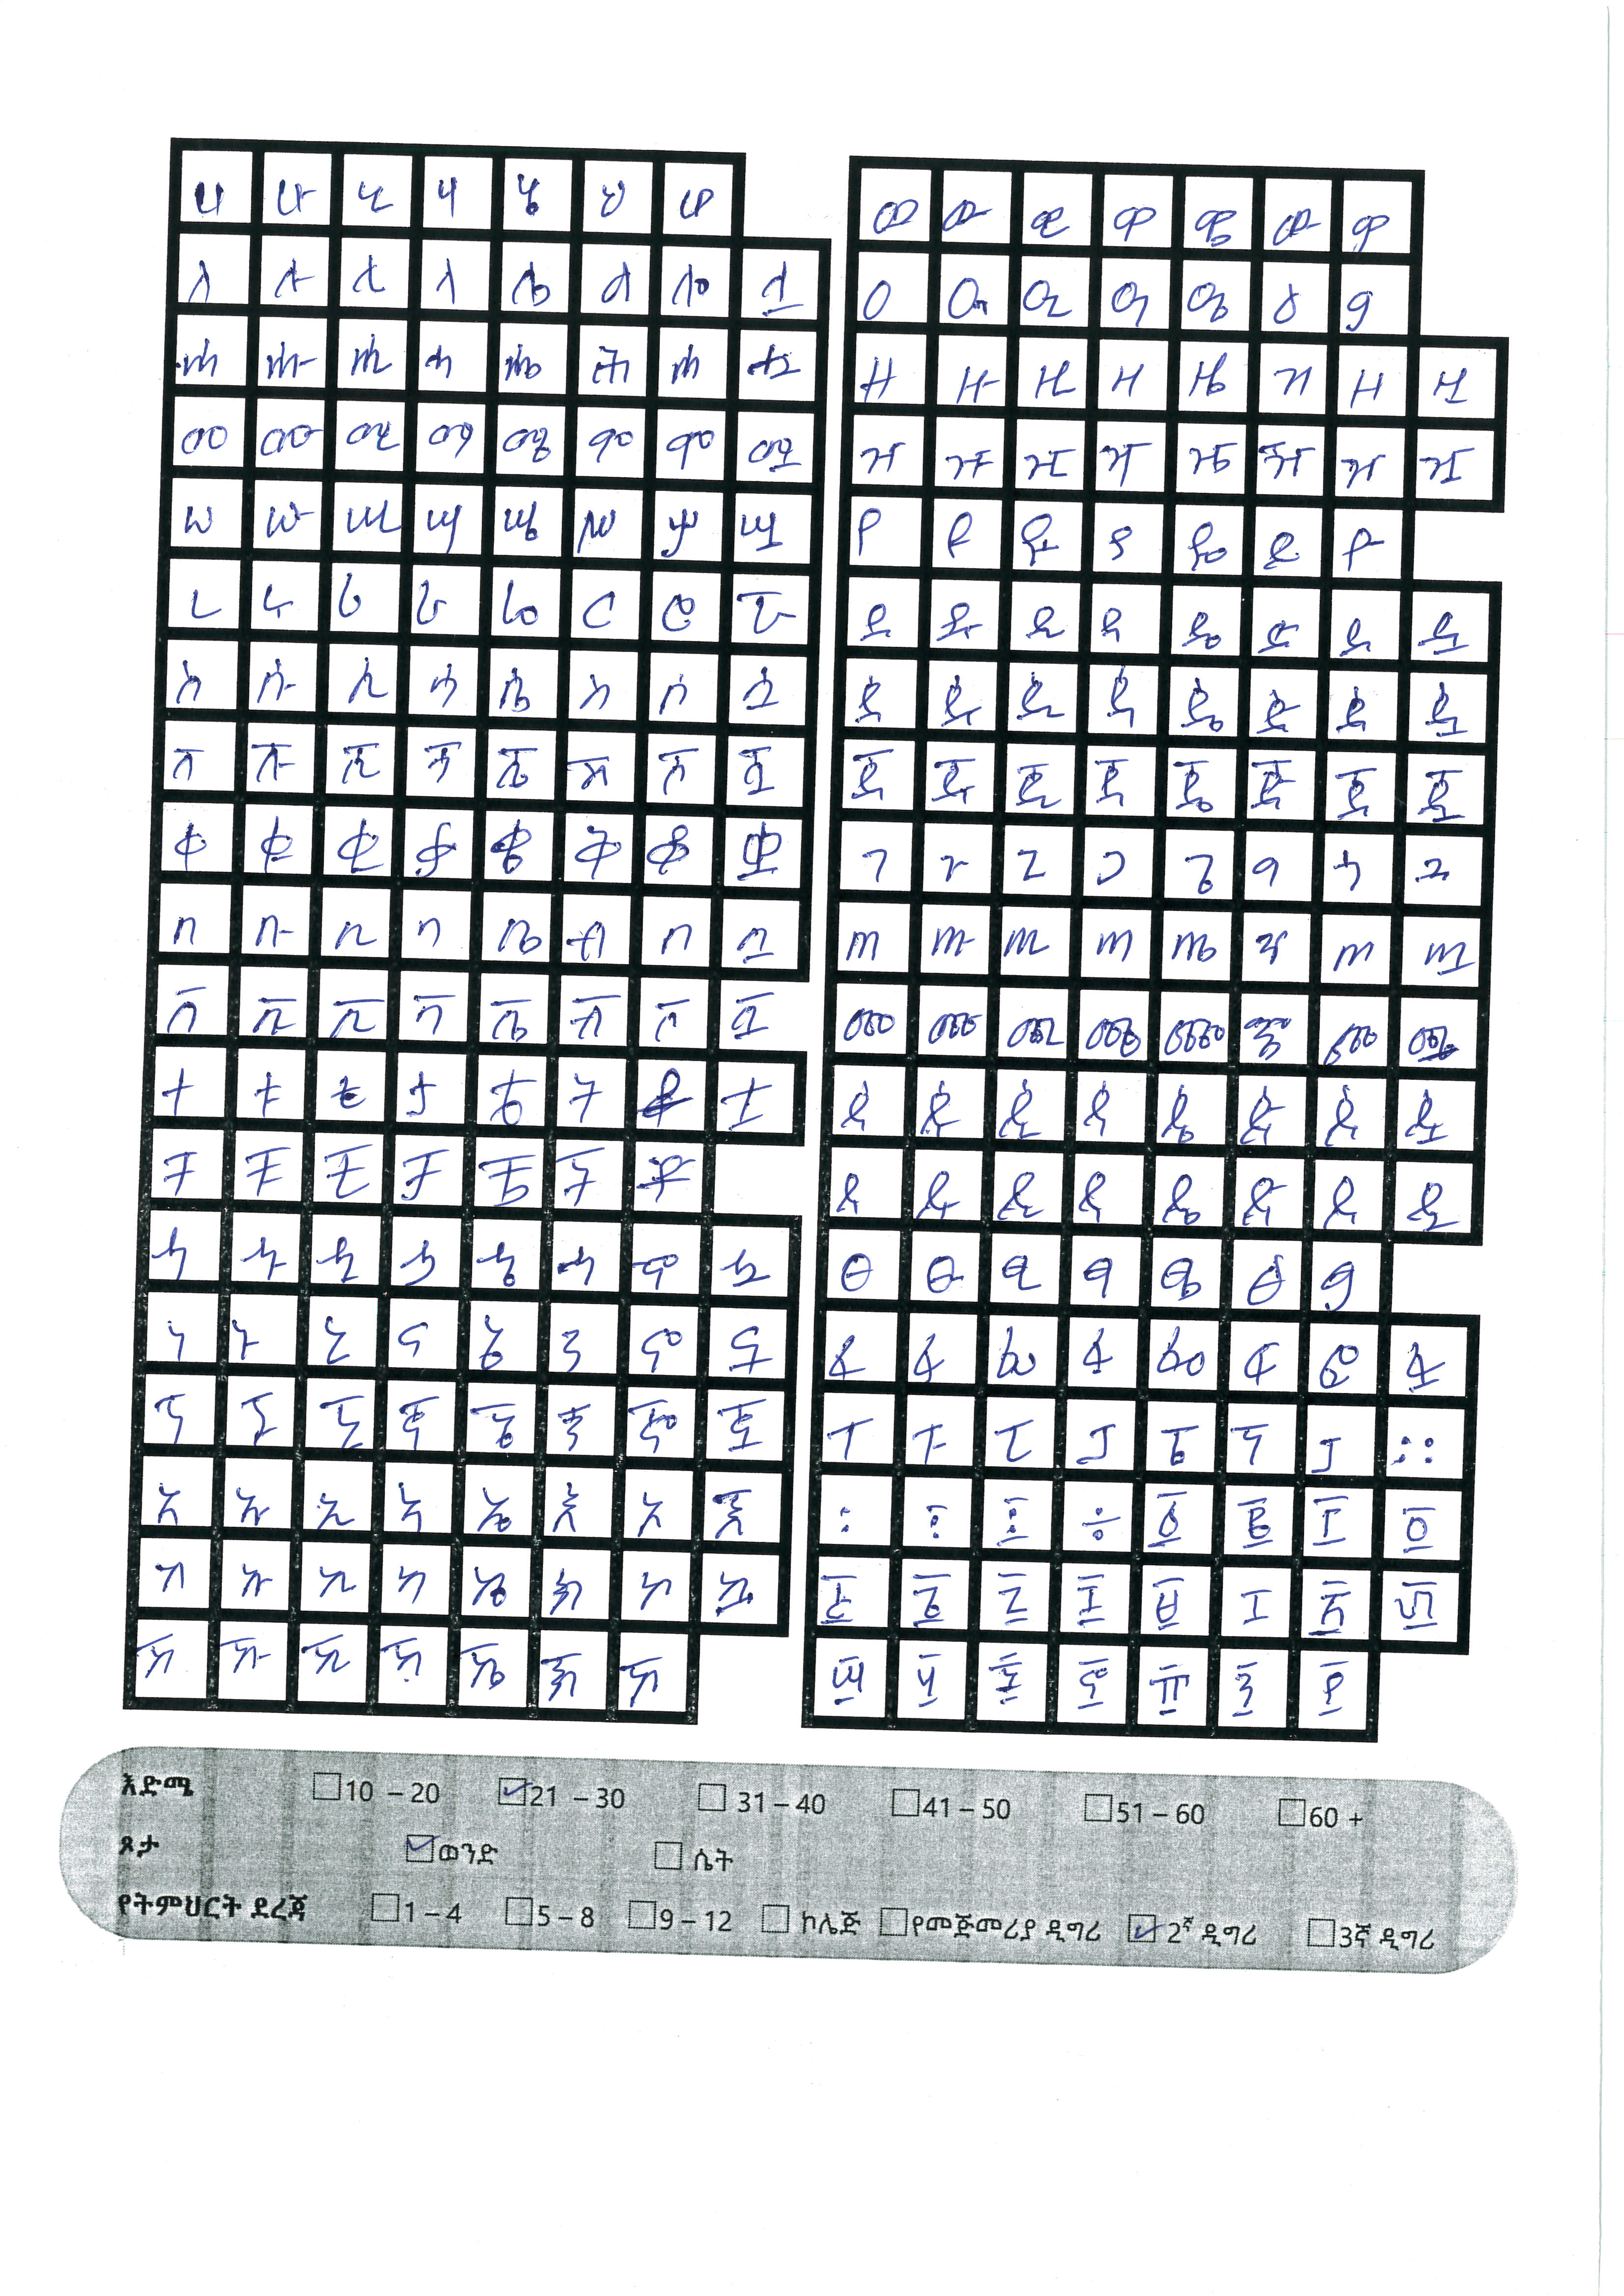 ሀ ሁ ሂ ሃ ሄ ህ ሆ
ለ ሉ ሊ ላ ሌ ል ሎ ሏ
ሐ ሑ ሒ ሓ ሔ ሕ ሖ ሗ
መ ሙ ሚ ማ ሜ ም ሞ ሟ
ሠ ሡ ሢ ሣ ሤ ሥ ሦ ሧ
ረ ሩ ሪ ራ ሬ ር ሮ ሯ
ሰ ሱ ሲ ሳ ሴ ስ ሶ ሷ
ሸ ሹ ሺ ሻ ሼ ሽ ሾ ሿ
ቀ ቁ ቂ ቃ ቄ ቅ ቆ ቋ
በ ቡ ቢ ባ ቤ ብ ቦ ቧ
ቨ ቩ ቪ ቫ ቬ ቭ ቮ ቯ
ተ ቱ ቲ ታ ቴ ት ቶ ቷ
ቸ ቹ ቺ ቻ ቼ ች ቾ
ኀ ኁ ኂ ኃ ኄ ኅ ኆ ኋ
ነ ኑ ኒ ና ኔ ን ኖ ኗ
ኘ ኙ ኚ ኛ ኜ ኝ ኞ ኟ
አ ኡ ኢ ኣ ኤ እ ኦ ኧ
ከ ኩ ኪ ካ ኬ ክ ኮ ኳ
ኸ ኹ ኺ ኻ ኼ ኽ ኾ
ወ ዉ ዊ ዋ ዌ ው ዎ
ዐ ዑ ዒ ዓ ዔ ዕ ዖ
ዘ ዙ ዚ ዛ ዜ ዝ ዞ ዟ
ዠ ዡ ዢ ዣ ዤ ዥ ዦ ዧ
የ ዩ ዪ ያ ዬ ይ ዮ
ደ ዱ ዲ ዳ ዴ ድ ዶ ዷ
ዸ ዹ ዺ ዻ ዼ ዽ ዾ ዿ
ጀ ጁ ጂ ጃ ጄ ጅ ጆ ጇ
ገ ጉ ጊ ጋ ጌ ግ ጎ ጓ
ጠ ጡ ጢ ጣ ጤ ጥ ጦ ጧ
ጨ ጩ ጪ ጫ ጬ ጭ ጮ ጯ
ጰ ጱ ጲ ጳ ጴ ጵ ጶ ጷ
ጸ ጹ ጺ ጻ ጼ ጽ ጾ ጿ
ፀ ፁ ፂ ፃ ፄ ፅ ፆ
ፈ ፉ ፊ ፋ ፌ ፍ ፎ ፏ
ፐ ፑ ፒ ፓ ፔ ፕ ፖ ።
፡ ፣ ፤ ÷ ፩ ፪ ፫ ፬
፭ ፮ ፯ ፰ ፱ ፲ ፳ ፴
፵ ፶ ፷ ፸ ፹ ፺ ፻
እድሜ 10 – 20 21 – 30 31 – 40 41 – 50 51 – 60 60 +
ጾታ ወንድ ሴት
የትምህርት ደረጃ 1 – 4 5 – 8 9 – 12 ኮሌጅ የመጀመሪያ ዲግሪ 2ኛ ዲግሪ 3ኛ ዲግሪ